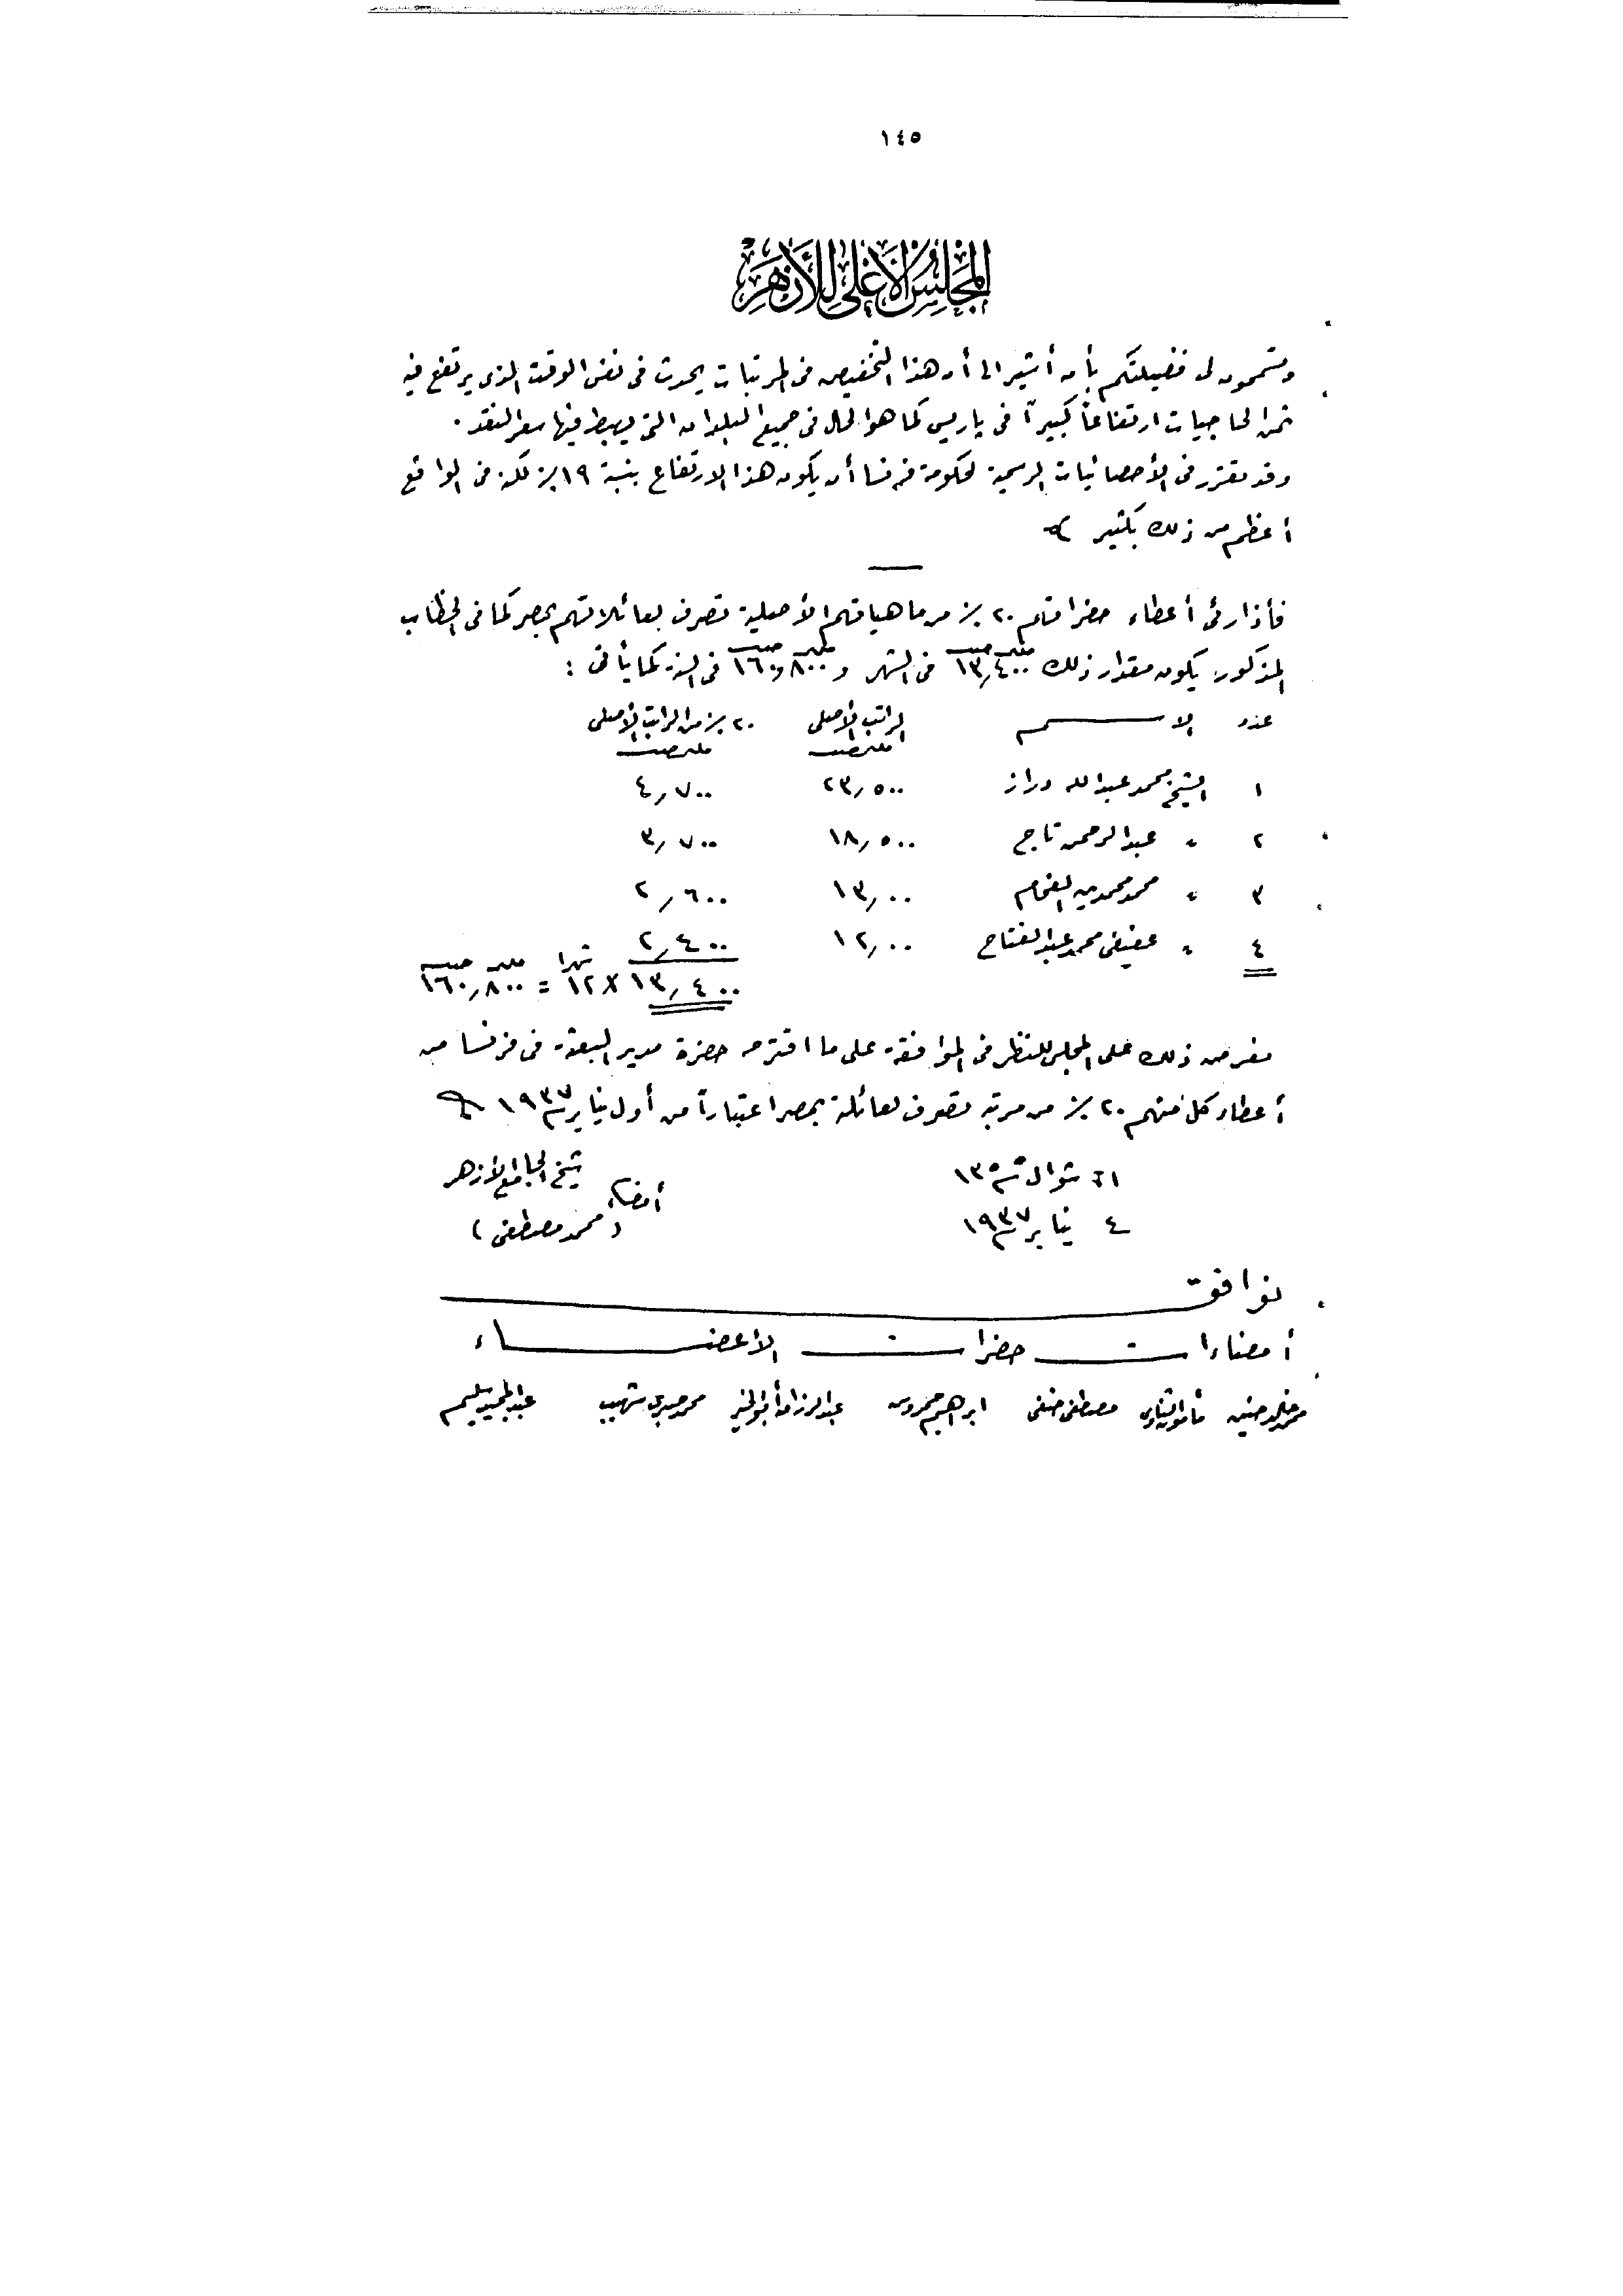 ١٤٥
المجلس الأعلى للأزهر
وتسمحون لى فضيلتكم بأن أشير الى أن هذا التخفيض فى المرتبات يحدث فى نفس الوقت الذى يرتفع فيه
ثمن الحاجيات ارتفاعاً كبيراً فى باريس كما هو الحال فى جميع البلدان التى يهبط فيها سعر النقد .
وقد تقرر فى الأحصائيات الرسمية لحكومة فرنسا أن يكون هذا الارتفاع بنسبة ١٩ ٪ لكنه فى الواقع
أعظم من ذلك بكثير
فأذا رئى أعطاء حضراتهم ٢٠ ٪ من ماهياتهم الأصلية تصرف لعائلاتهم بمصر كما فى الخطاب
المذكور يكون مقدار ذلك ١٣٫٤٠٠ فى الشهر و ١٦٠٫٨٠٠ فى السنة كما يأتى :
عدد الاسم الراتب الأصلى ٢٠ ٪ من الراتب الأصلى
مليم جنيه مليم جنيه
١ الشيخ محمد عبد الله دراز ٢٣٫٥٠٠ ٤٫٧٠٠
٢ " عبد الرحمن تاج ١٨٫٥٠٠ ٣٫٧٠٠
٣ " محمد محمدين الفحام ١٣٫٠٠ ٢٫٦٠٠
٤ " عفيفى محمد عبد الفتاح ١٢٫٠٠ ٢٫٤٠٠
١٣٫٤٠٠ × ١٢ شهرا = ١٦٠٫٨٠٠ مليم جنيه
نعرض ذلك على المجلس للنظر فى الموافقة على ما اقترحه حضرة مدير البعثة فى فرنسا من
أعطاء كل منهم ٢٠ ٪ من مرتبه تصرف لعائلته بمصر اعتباراً من أول يناير سنة ١٩٣٧
٢١ شوال سنة ١٣٥٥ شيخ الجامع الأزهر
٤ يناير سنة ١٩٣٧ أمضاء ( محمد مصطفى )
نوافق
أمضاءات حضرات الأعضاء
محمد خالد حسنين مأمون الشناوى مصطفى حنفى ابراهيم حمروش عبد الرزاق أبو الخير محمد صبرى شهيب عبد المجيد سليم